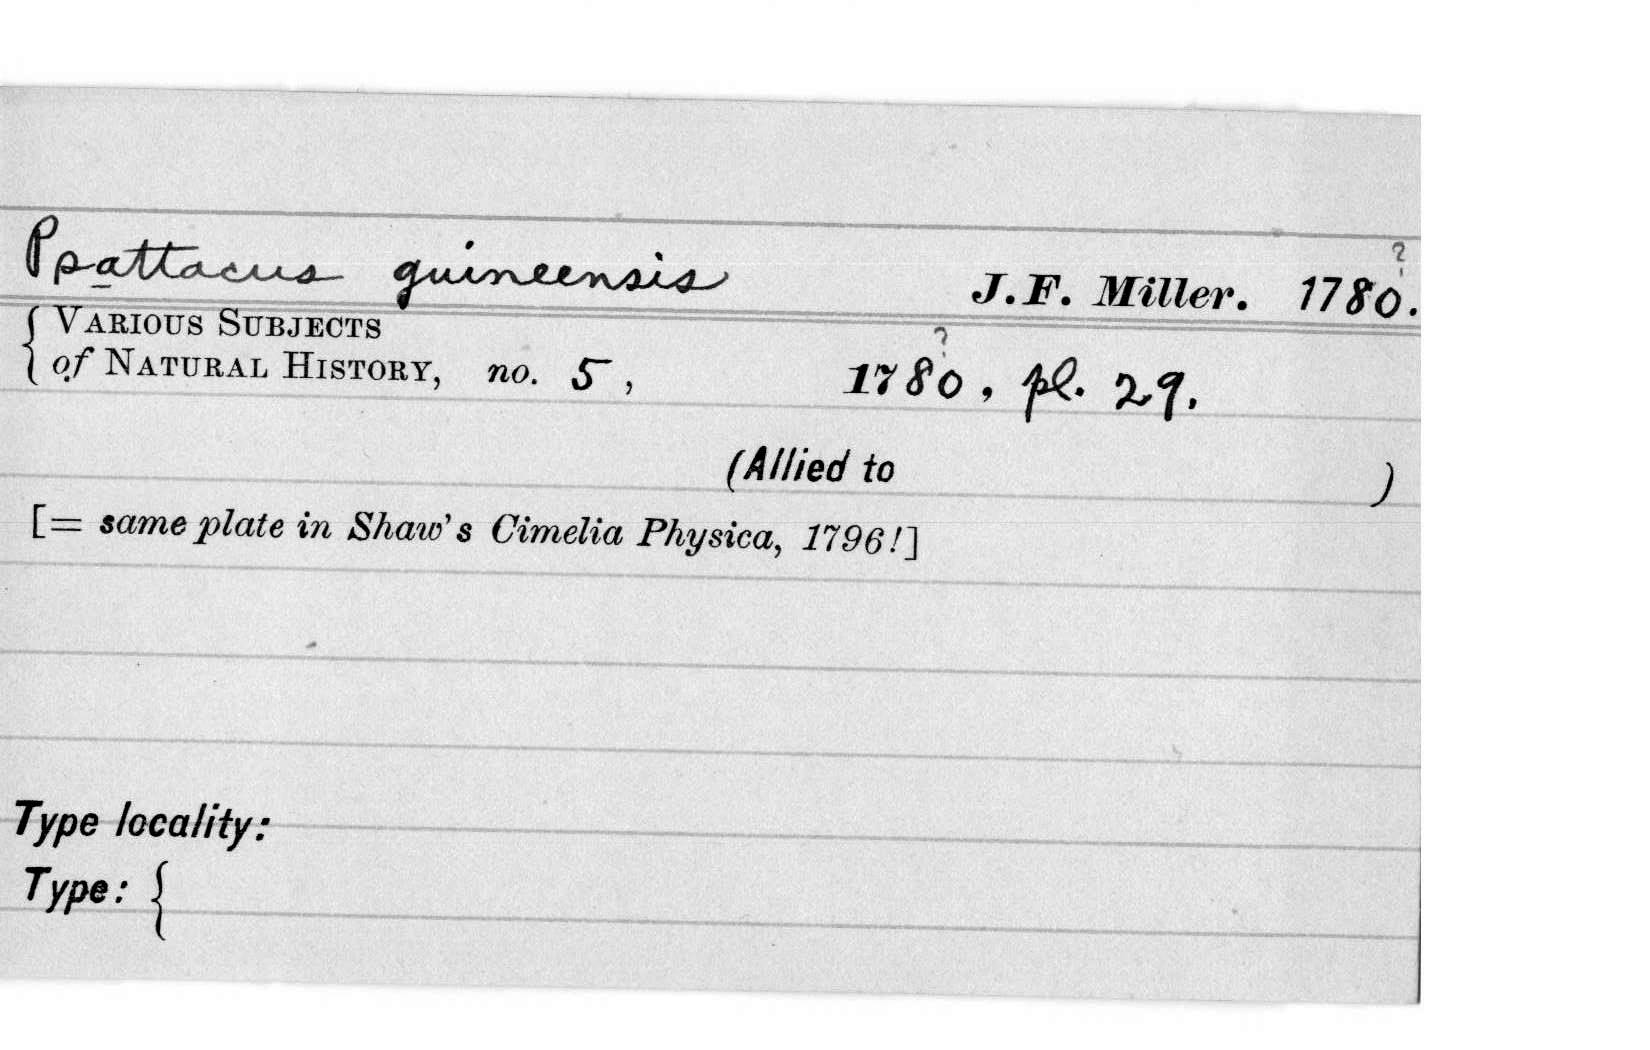 Psattacus guineensis J.F. Miller. 1780?.
{ VARIOUS SUBJECTS
of NATURAL HISTORY, no. 5, 1780?, pl. 29.
(Allied to )
[= same plate in Shaw's Cimelia Physica, 1796!]
Type locality:
Type: {